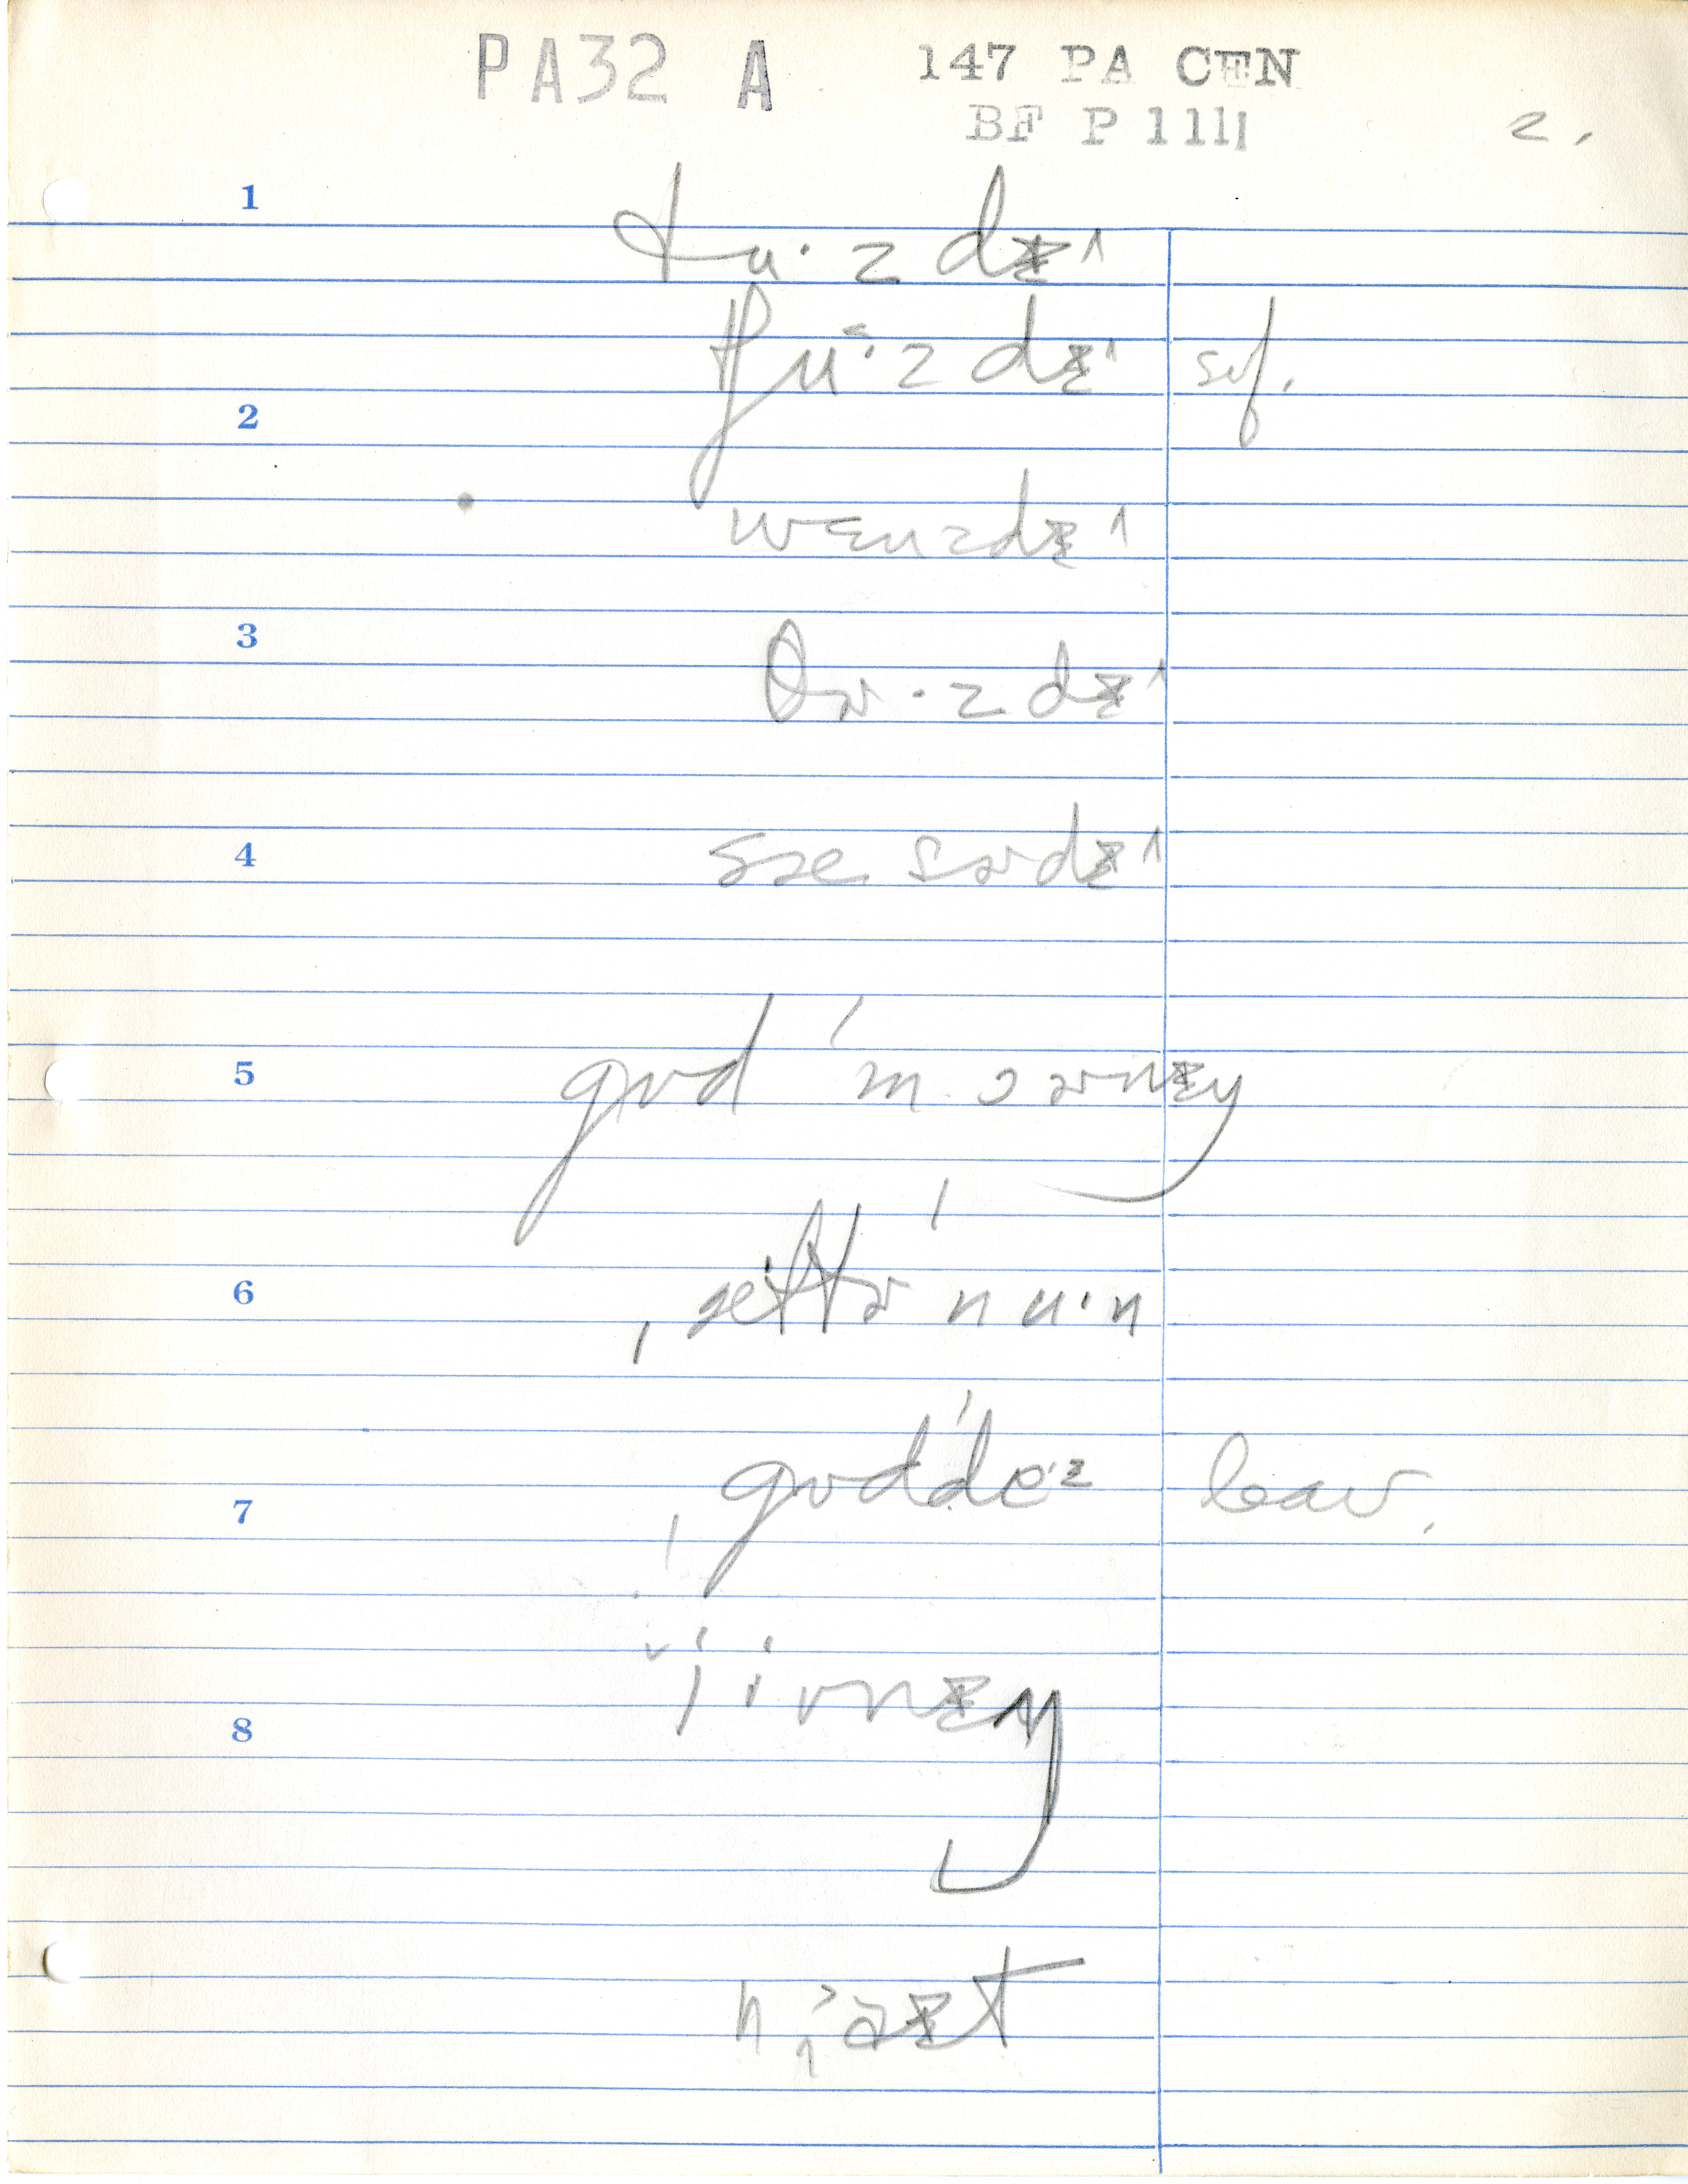 PA32 A 147 PA CEN
BF P 111 2.
1
tu·zdɪ˄
tʃu·zdɪ˄ sf.
2
wɛnzdɪ˄
3
θɚ·zdɪ˄
4
sæ sɚdɪ˄
5
gʊd ˈmɔɚnɪŋ
6
ˌæftɚˈnu·n
7
ˌgʊdˈde·ɪ leav.
8
ˈiˑvnɪŋ
naɪt